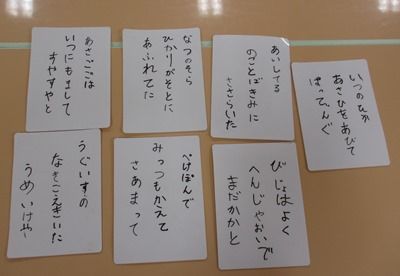 いつのひか
あさひをあびて
あいしてる
のことばきみに
なつのそら
ひかりがそとに
あふれてた
いつにもまして
すやすやと
びじょはよく
へんじゃおいで
まだかかと
ぺけぽんで
みっつもかえて
さあまって
うぐいすの
なきごえきいた